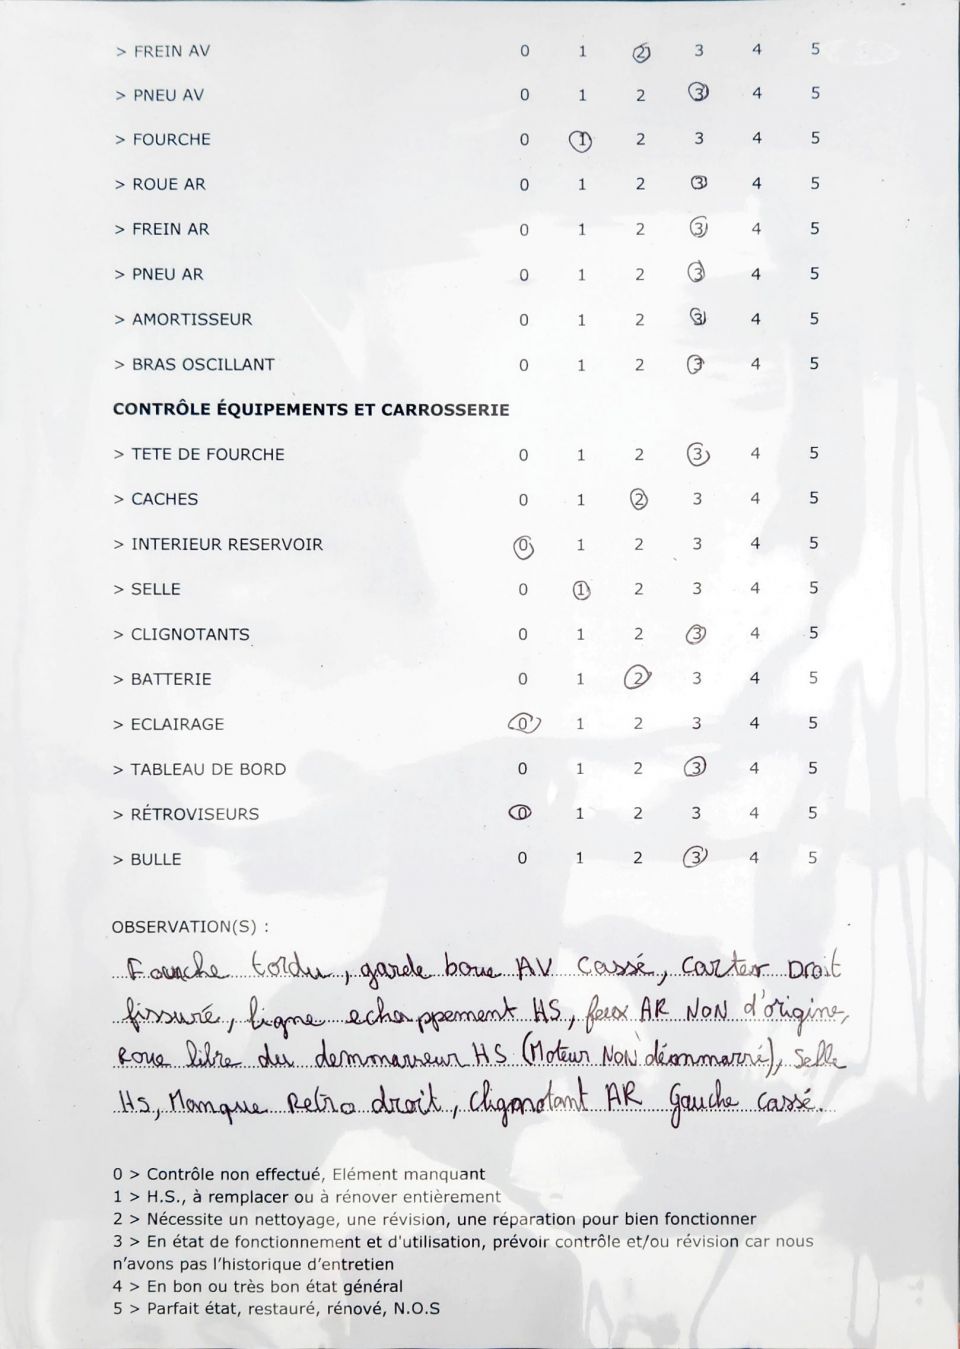 > FREIN AV 0 1 2 3 4 5
> PNEU AV 0 1 2 3 4 5
> FOURCHE 0 1 2 3 4 5
> ROUE AR 0 1 2 3 4 5
> FREIN AR 0 1 2 3 4 5
> PNEU AR 0 1 2 3 4 5
> AMORTISSEUR 0 1 2 3 4 5
> BRAS OSCILLANT 0 1 2 3 4 5
CONTRÔLE ÉQUIPEMENTS ET CARROSSERIE
> TETE DE FOURCHE 0 1 2 3 4 5
> CACHES 0 1 2 3 4 5
> INTERIEUR RESERVOIR 0 1 2 3 4 5
> SELLE 0 1 2 3 4 5
> CLIGNOTANTS 0 1 2 3 4 5
> BATTERIE 0 1 2 3 4 5
> ECLAIRAGE 0 1 2 3 4 5
> TABLEAU DE BORD 0 1 2 3 4 5
> RÉTROVISEURS 0 1 2 3 4 5
> BULLE 0 1 2 3 4 5
OBSERVATION(S) :
Fourche tordu, garde boue AV cassé, carter Droit
fissuré, ligne echappement HS, feux AR NON d'origine,
roue libre du demmarreur HS (Moteur NON démmarré), Selle
HS, Manque Retro droit, Clignotant AR Gauche cassé.
0 > Contrôle non effectué, Elément manquant
1 > H.S., à remplacer ou à rénover entièrement
2 > Nécessite un nettoyage, une révision, une réparation pour bien fonctionner
3 > En état de fonctionnement et d'utilisation, prévoir contrôle et/ou révision car nous
n'avons pas l'historique d'entretien
4 > En bon ou très bon état général
5 > Parfait état, restauré, rénové, N.O.S